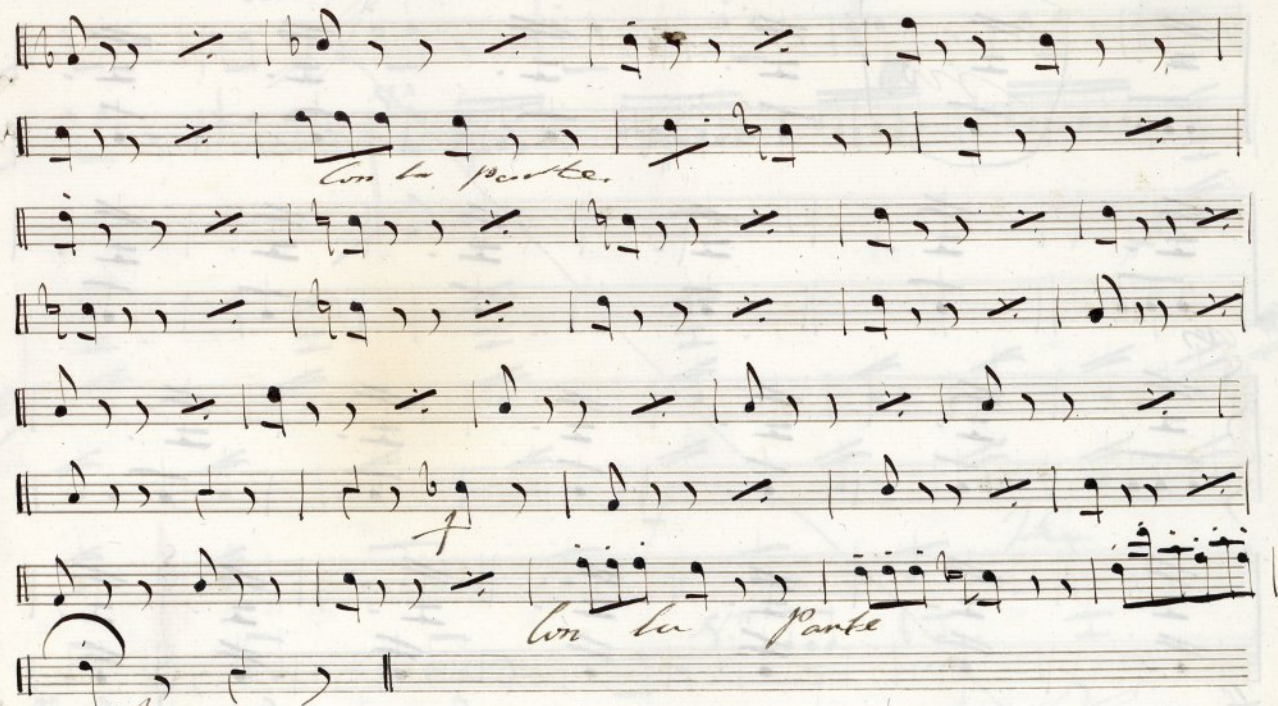 Con la parte.
f
Con la Parte